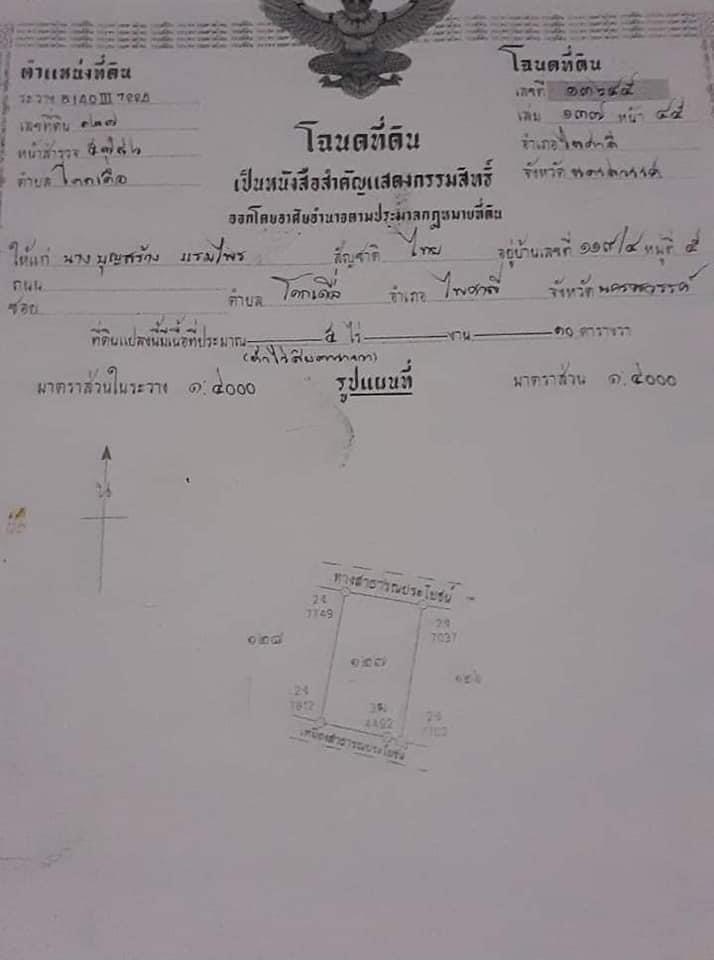 ตำแหน่งที่ดิน
ระวาง 5140 III
เลขที่ดิน ๑๒๗
หน้าสำรวจ
ตำบล โคกเดื่อ
โฉนดที่ดิน
เลขที่ ๑๓๖๔๕
เล่ม ๑๓๗ หน้า ๔๕
อำเภอ ไพศาลี
จังหวัด นครสวรรค์
โฉนดที่ดิน
เป็นหนังสือสำคัญแสดงกรรมสิทธิ์
ออกโดยอาศัยอำนาจตามประมวลกฎหมายที่ดิน
ให้แก่ นาง บุญสร้าง แรมไพร สัญชาติ ไทย อยู่บ้านเลขที่ ๑๑๙/๔ หมู่ที่ ๕
ถนน
ซอย ตำบล โคกเดื่อ อำเภอ ไพศาลี จังหวัด นครสวรรค์
ที่ดินแปลงนี้มีเนื้อที่ประมาณ ๕ ไร่ งาน ๑๐ ตารางวา
(ห้าไร่สิบตารางวา)
มาตราส่วนในระวาง ๑:๔๐๐๐ รูปแผนที่ มาตราส่วน ๑:๔๐๐๐
น
ทางสาธารณประโยชน์
2จ
7749
2จ
7037
๑๒๘
๑๒๗
๑๒๖
2จ
7812
4492
2จ
เหมืองสาธารณประโยชน์